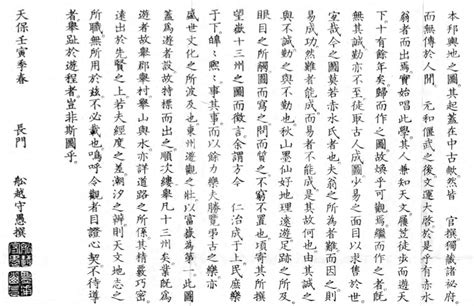 本邦輿地之圖其起蓋在中古歟然皆　官撰獨藏諸祕府
而無傳於人間　元和偃武之後文運大啓於是乎有赤水
翁者而出焉實始唱此學其人兼知天文屨徒步而遊天
下十有餘年矣歸而作之圖故乎可觀焉繼而作之者既
無其誠勤亦不至徒取古人成圖少易之面目以求售於世
哉今之圖莫若赤水氏者也夫翁之所為者難而因之則
易成功然難者能成而易者不能成是其故何也由其誠之
與不誠勤之與不勤也秋山墨仙好地理遠遊足跡之所及
眼目之所觸圖而寫之問而質之不窮不置也頃寄其所
望嶽十三州之圖而徵言余謂方今　仁治成于上民庶樂
于下皡々熙々事其事而以餘力樂勝覽乎古之樂亦
盛世文化之所波及也東州遊觀之壯以富嶽為第一此圖
蓋為遊者設故特標而出之順次舉凡十三州矣既為
遊者故舉郡舉村舉山與水亦詳道路之所係其精覈巧密
遠出於先賢之上若夫經度之差潮汐之辨則天文地志之
所職無所用於玆不必載也嗚呼令觀者目證心契不待導
者舉趾於遊程者豈非斯圖乎
天保壬寅季春　長門　船越守愚撰